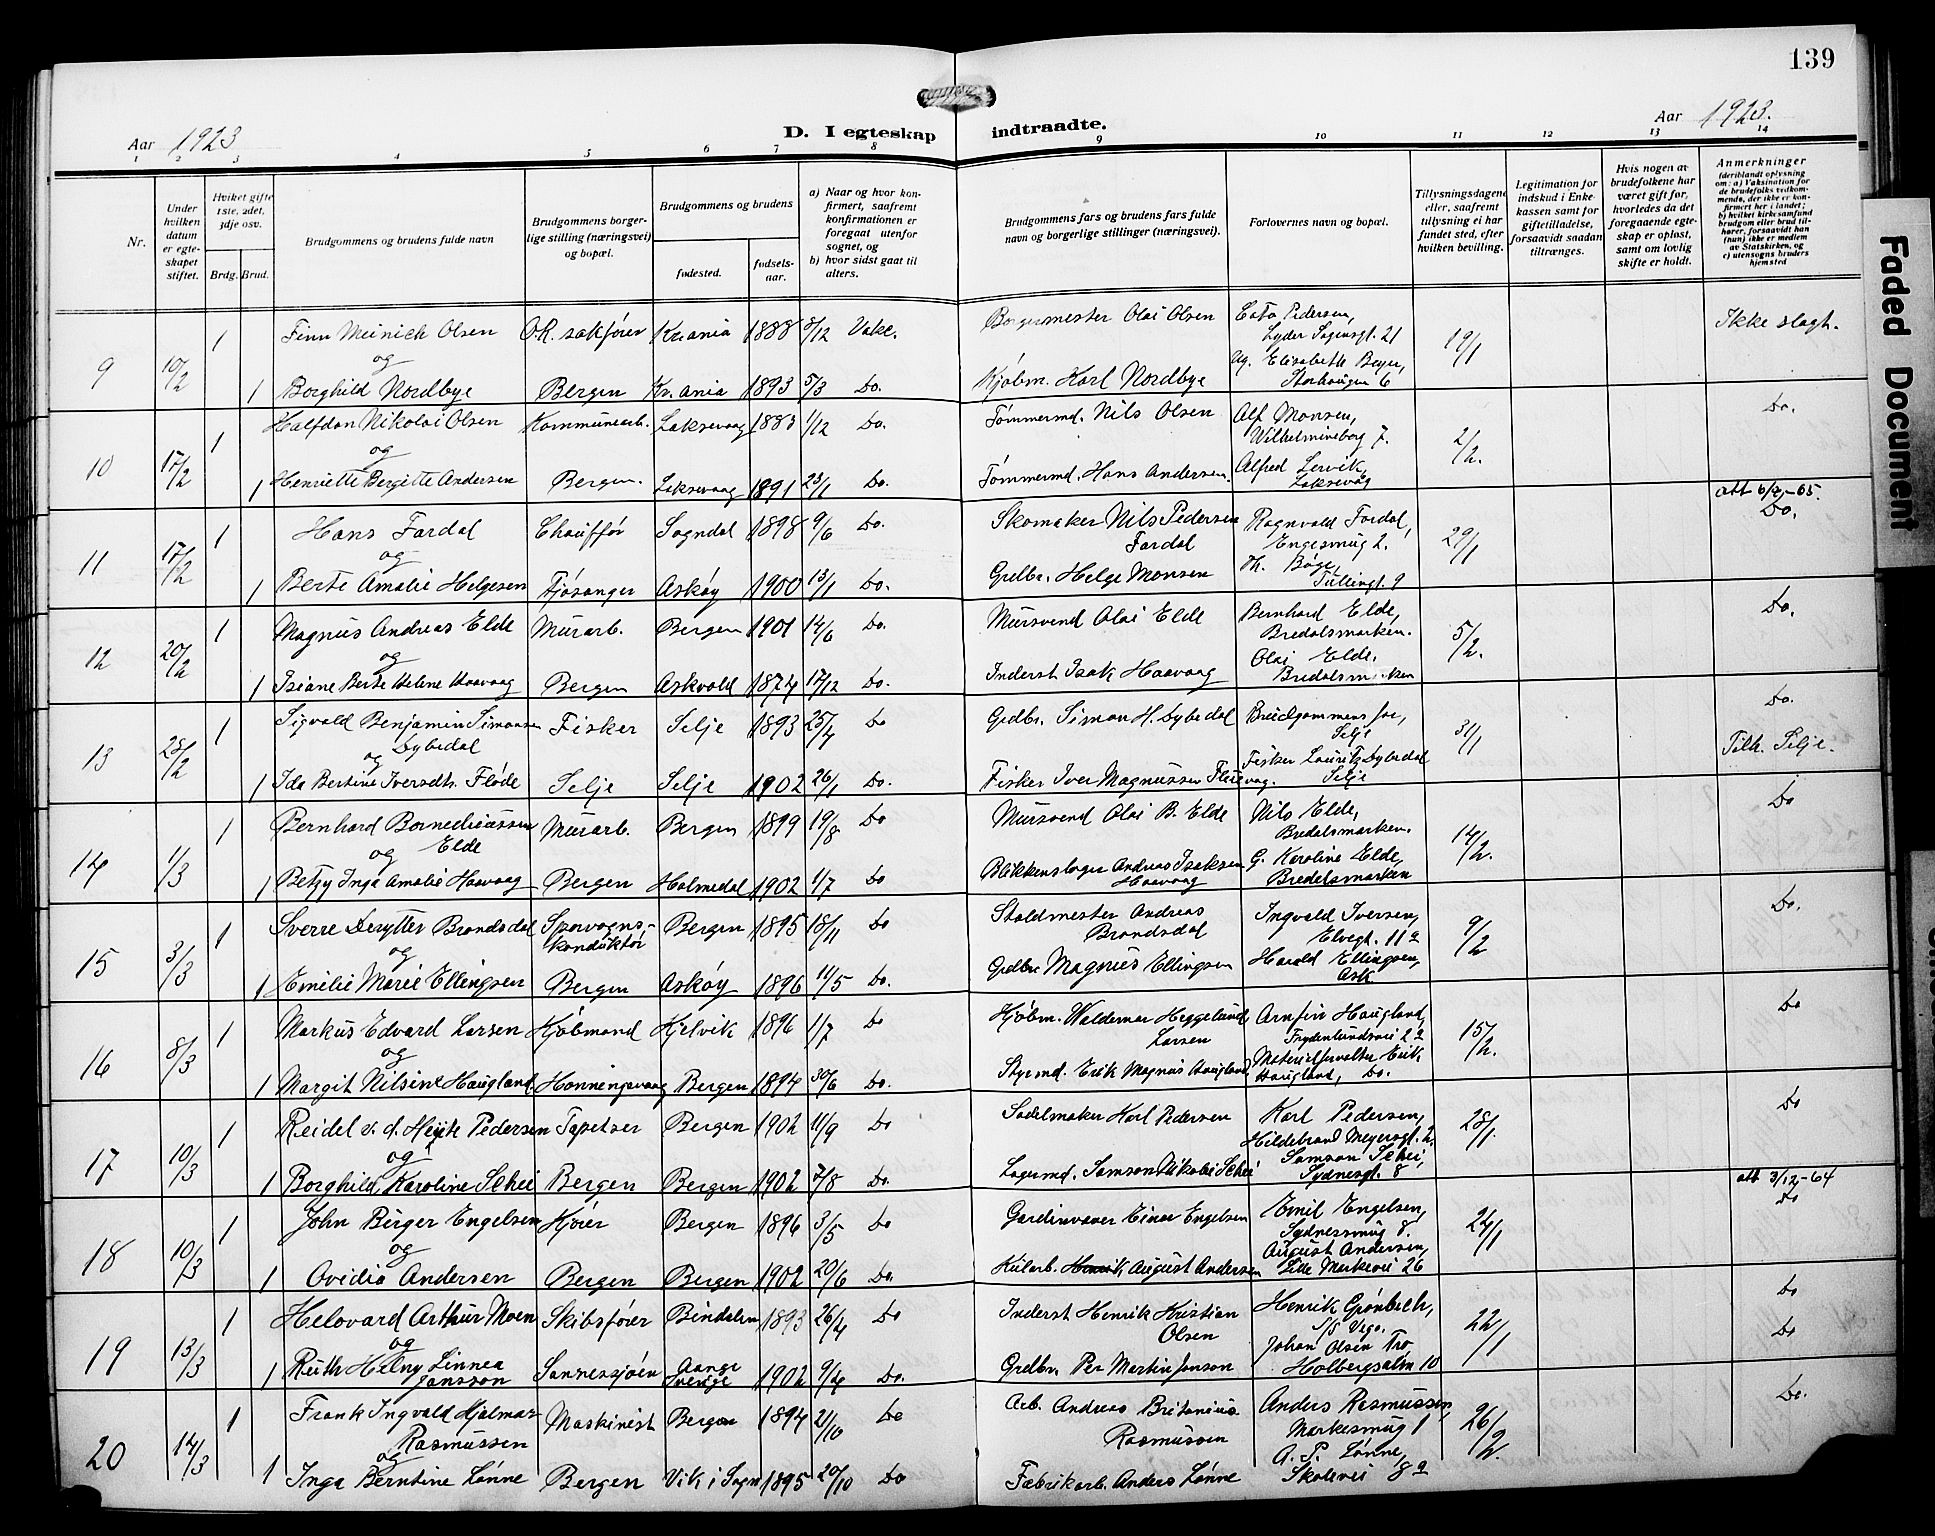 139
Aar 1923
D. I egteskap indtraadte.
Aar 1923.
1 2 3 4 5 6 7 8 9 10 11 12 13 14
Nr.
Under hvilken datum er egteskapet stiftet.
Hvilket gifte 1ste, 2det, 3dje osv.
Brdg. Brud.
Brudgommens og brudens fulde navn
Brudgommens borgerlige stilling (næringsvei) og bopæl.
Brudgommens og brudens
fødested.
fødselsaar.
a) Naar og hvor konfirmert, saafremt konfirmationen er foregaat utenfor sognet, og
b) hvor sidst gaat til alters.
Brudgommens fars og brudens fars fulde navn og borgerlige stillinger (næringsvei).
Forlovernes navn og bopæl.
Tillysningsdagene eller, saafremt tillysning ei har fundet sted, efter hvilken bevilling.
Legitimation for indskud i Enkekassen samt for giftetilladelse, forsaavidt saadan tiltrænges.
Hvis nogen av brudefolkene har været gift før, hvorledes da det foregaaende egteskap er opløst, samt om lovlig skifte er holdt.
Anmerkninger
(deriblandt oplysning om: a) Vaksination for de brudefolks vedkommende, der ikke er konfirmert her i landet; b) hvilket kirkesamfund brudgom eller brud tilhører, forsaavidt han (hun) ikke er medlem av Statskirken, og c) utensogns bruders hjemsted
9 10/2 1 Finn Meinich Olsen O.R. sakfører Kr.ania 1888 8/12 Borgermester Olai Olsen Cato Pedersen, Lyder Sagensgt. 21 19/1 Ikke slagt.
og
1 Borghild Nordbye Bergen Kr.ania 1893 5/3 Do. Kjøbm. Karl Nordbye Elisabeth Beyer, Storhaugen 6
10 17/2 1 Halfdan Nikolai Olsen Kommunearb. Laksevaag 1883 1/12 Do. Tømmermd. Nils Olsen Alf Monsen, Wilhelmineborg 7. 2/2. Do.
og
1 Henriette Bergitte Andersen Bergen. Laksevaag 1891 23/1 Do. Tømmermd. Hans Andersen. Alfred Lervik, Laksevåg
att 6/8-65.
11 17/2 1 Hans Fardal Chauffør Sogndal 1898 9/6 Do. Skomaker Nils Pedersen Fardal Ragnvald Fardal, Engesmug 2. 29/1 Do.
og
1 Berte Amalie Helgesen Fjøsanger Askøy 1900 13/1 Do. Grdbr. Helge Monsen Th. Bøge, Tullingt. 9
12 20/2 1 Magnus Andreas Elde Murarb. Bergen 1901 14/6 Do. Mursvend Olai Elde Bernhard Elde, Bredalsmarken. 5/2. Do.
og
1 Isiane Berte Helene Haavaag Bergen Askvold 1874 17/12 Do. Inderst Isak Haavaag Olai Elde, Bredalsmarken
13 28/2 1 Sigvald Benjamin Simonsen Dybedal Fisker Selje 1893 25/4 Do Grdbr. Simon H. Dybedal Brudgommens far, Selje 31/1 Do.
og
1 Ida Bertine Iversdtr. Fløde Selje Selje 1902 26/1 Do. Fisker Iver Magnussen Fisker Lauritz Dybedal Selje Tilh. Selje.
14 1/3 1 Bernhard Bernediciussen Elde Murarb. Bergen 1899 19/8 Do Mursvend Olai B. Elde Nils Elde, Bredalsmarken. 14/2. Do
og
1 Betzy Inga Amalie Haavaag Bergen Holmedal 1902 1/7 Do Blikkenslager Andreas Isaksen Haavaag G. Karoline Elde, Bredalsmarken
15 3/3 1 Sverre Desytter Brandsdal Sporvognskonduktør Bergen 1895 18/11 Do Staldmester Andreas Brandsdal Ingvald Iversen, Elvegt. 11a 9/2 Do.
og
1 Emilie Marie Ellingsen Bergen Askøy 1896 11/5 Do. Grdbr Magnus Ellingsen Harald Ellingsen, Ask.
16 8/3 1 Markus Edvard Larsen Kjøbmand Kjelvik 1896 1/7 Do Kjøbm. Waldemar Heggelund Larsen Arnfin Haugland, Frydenlundsvei 22 15/2. Do
og
1 Margit Nilsine Haugland Honningsvaag Bergen 1894 30/6 Do. Styrmd. Erik Magnus Haugland Materialforvalter Erik Haugland, Do.
17 10/3 1 Reidel v. d. Heyk Pedersen Tapetser Bergen 1902 11/9 Do Sadelmaker Karl Pedersen Karl Pedersen, Hildebrand Meyersgt. 2. 28/1. Do
og
1 Borghild Karoline Schei Bergen Bergen 1902 7/8 Do. Lagermd. Samson Nikolai Schei Samson Schei, Sydnesgt. 8
att 3/12-64
18 10/3 1 John Birger Engelsen Kjører Bergen 1896 3/5 Do Gardinvaver Einar Engelsen Emil Engelsen, Sydnessmug 8. 24/1 Do
og
1 Ovidia Andersen Bergen Bergen 1902 20/6 Do. Kularb. August Andersen August Andersen, Lille Markevei 26
19 13/3 1 Helovard Arthur Moen Skibsfører Bindalen 1893 26/4 Do Inderst Henrik Kristian Olsen Henrik Grønbech, S/S Vega. 22/1 Do
og
1 Ruth Helny Linnea Jansson Sannessjøen Sverige 1902 9/4 Do. Grdbr. Per Martin Jonson Johan Olsen Tro, Holbergsalm 10 Do
20 14/3 1 Frank Ingvald Hjalmar Rasmussen Maskinist Bergen 1894 21/10 Do Arb. Andreas Britanius Rasmussen Anders Rasmussen, Markesmug 1 26/2. Do.
og
1 Inga Berntine Lønne Bergen Vik i Sogn 1895 20/10 Do Fabrikarb. Anders Lønne A. P. Lønne, Skolevei 8a
Faded Document